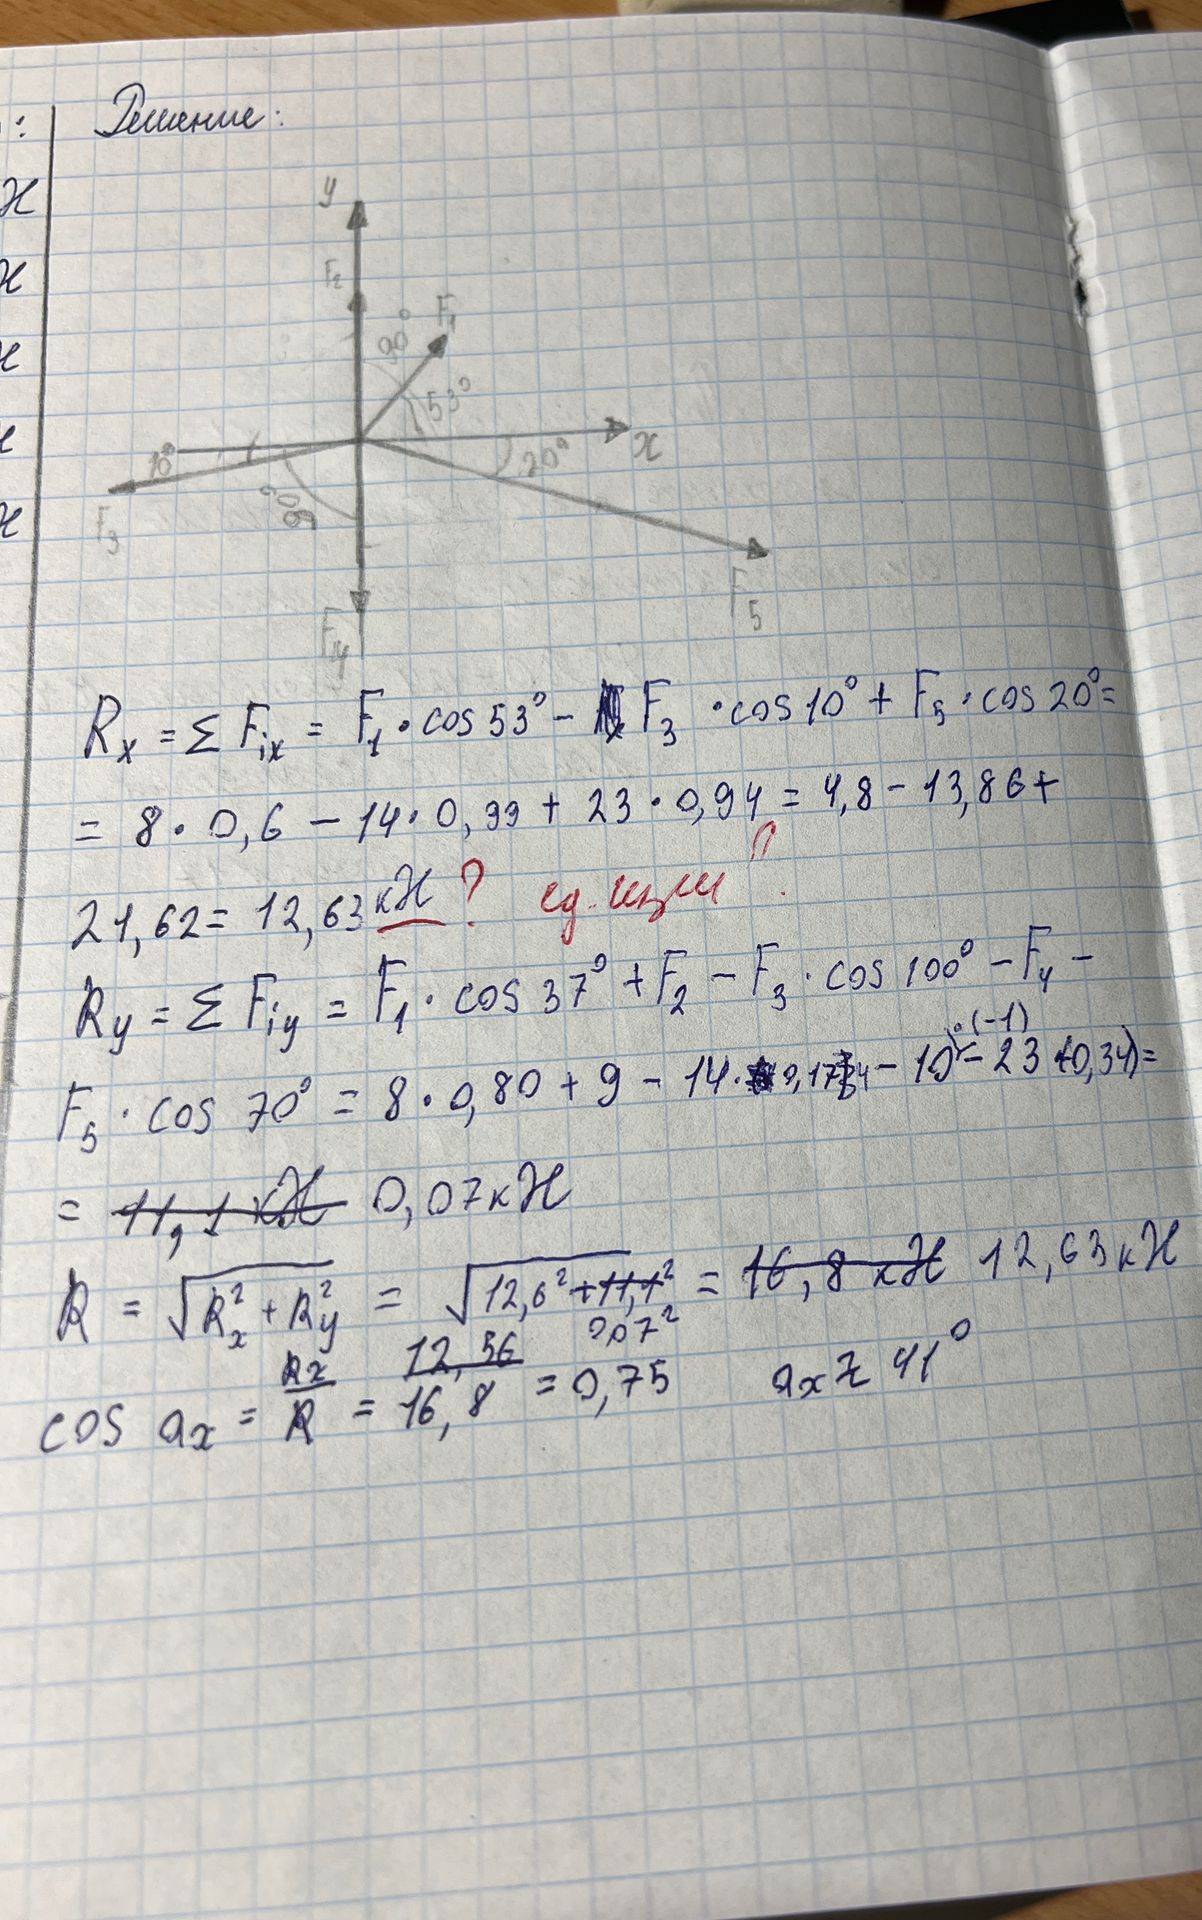 Решение:
y
F₂
90°
F₁
53°
x
20°
10°
F₃
80°
F₄
F₅
Rx = Σ Fix = F₁ · cos 53° − F₃ · cos 10° + F₅ · cos 20° =
= 8 · 0,6 − 14 · 0,99 + 23 · 0,94 = 4,8 − 13,86 +
21,62 = 12,63 кН ? ед. изм ?
Ry = Σ Fiy = F₁ · cos 37° + F₂ − F₃ · cos 100° − F₄ −
F₅ · cos 70° = 8 · 0,80 + 9 − 14 · − 10 · (−1) − 23 (0,34) =
= 11,1 кН 0,07 кН
R = √Rx² + Ry² = √12,6² + 11,1² = 16,8 кН 12,63 кН
0,07²
cos ax = Rx/R = 12,56/16,8 = 0,75 ax ≈ 41°